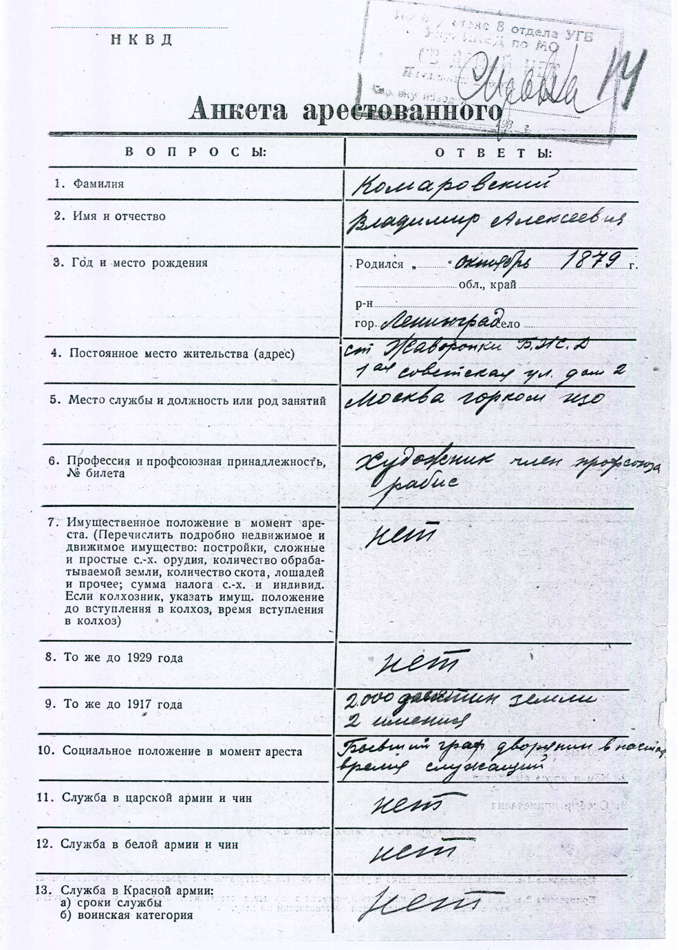 НКВД
8 отдела УГБ
по МО
14
Анкета арестованного
ВОПРОСЫ: ОТВЕТЫ:
1. Фамилия Комаровский
2. Имя и отчество Владимир Алексеевич
3. Год и место рождения Родился „ " октябрь 1879 г.
обл., край
р-н
гор. Ленинград село
4. Постоянное место жительства (адрес) ст Жаворонки Б.Ж.Д
1ая советская ул. дом 2
5. Место службы и должность или род занятий Москва горком изо
6. Профессия и профсоюзная принадлежность, Художник член профсоюза
№ билета рабис
7. Имущественное положение в момент аре-
ста. (Перечислить подробно недвижимое и нет
движимое имущество: постройки, сложные
и простые с.-х. орудия, количество обраба-
тываемой земли, количество скота, лошадей
и прочее; сумма налога с.-х. и индивид.
Если колхозник, указать имущ. положение
до вступления в колхоз, время вступления
в колхоз)
8. То же до 1929 года нет
9. То же до 1917 года 2.000 десятин земли
2 имения
10. Социальное положение в момент ареста Бывший граф дворянин в настоя
время служащий
11. Служба в царской армии и чин нет
12. Служба в белой армии и чин нет
13. Служба в Красной армии: нет
а) сроки службы
б) воинская категория